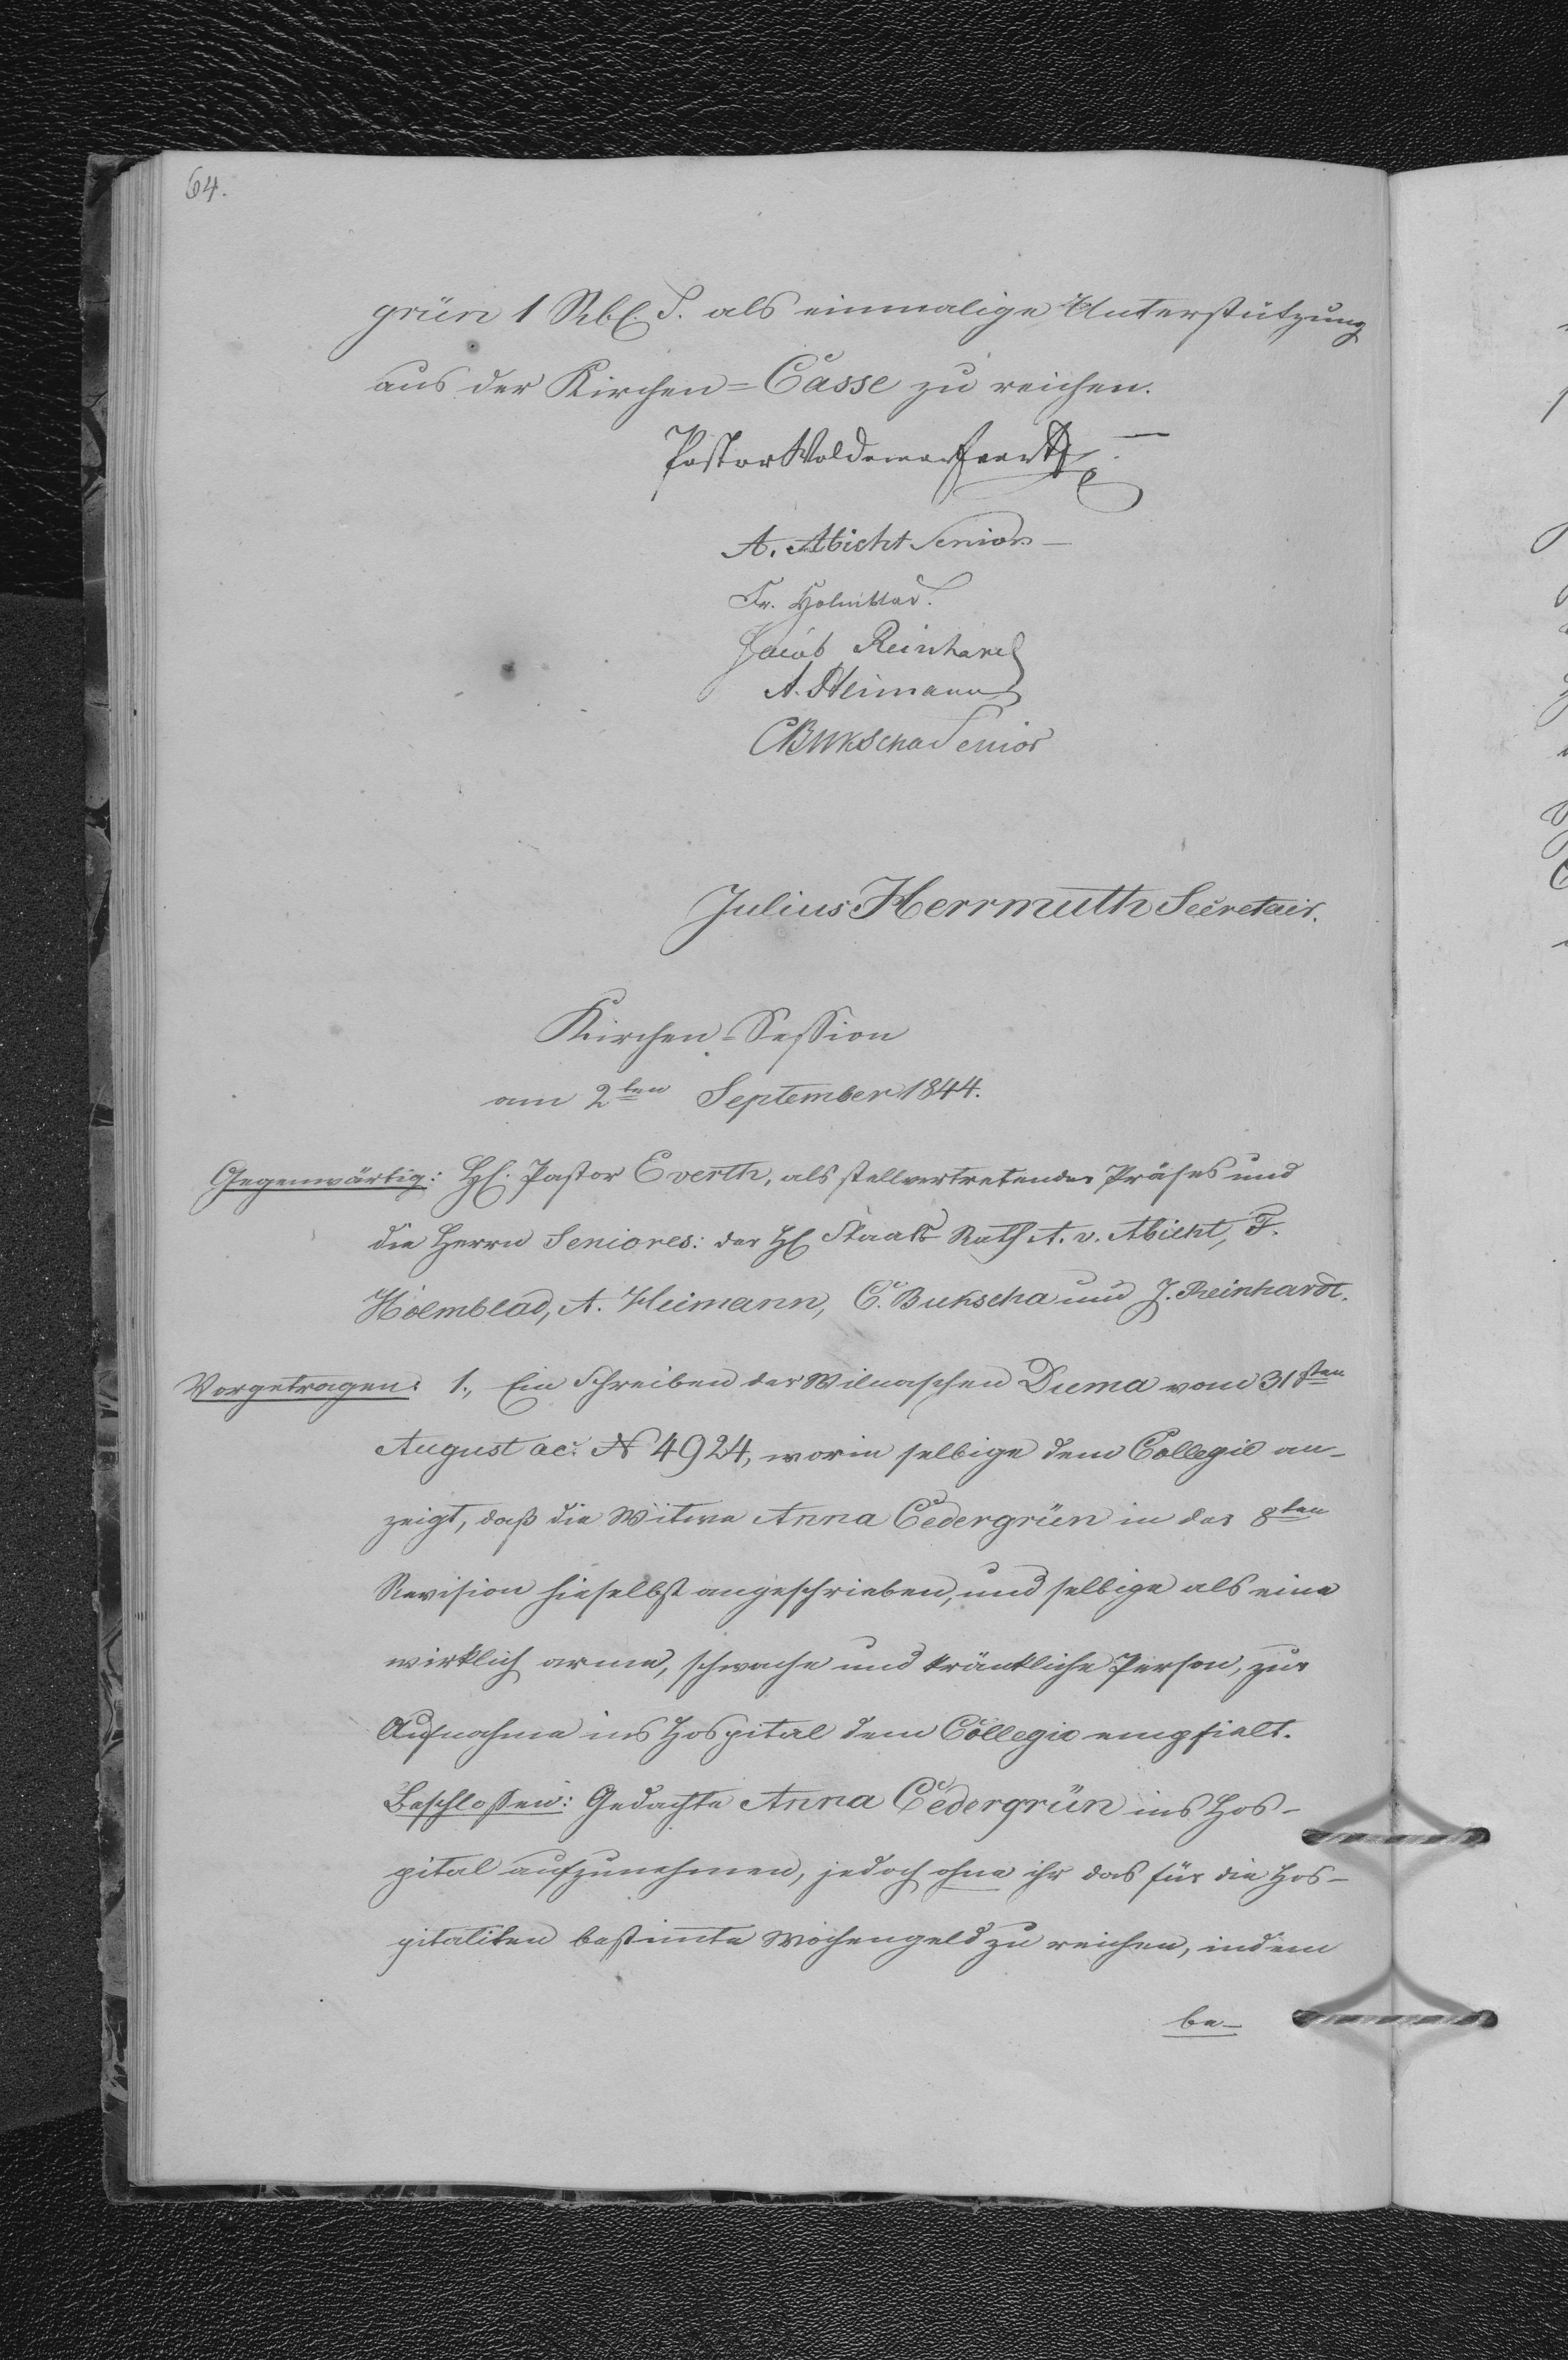 64.
grün 1 Rbl. S. als einmalige Unterstützung
aus der Kirchen=Casse zu reichen.
Pastor Woldemar Everth
A. Abicht Senior
Fr. Holmblad.
Jacob Reinhard
A. Heimann
CBukscha Senior
Julius Herrmuth Secretair.
Kirchen=Session
am 2ten September 1844.
Gegenwärtig: H. Pastor Everth, als stellvertretender Präses und
die Herrn Seniores: der H. Staats Rath A. v. Abicht, F.
Holmblad, A. Heimann, C. Bukscha und J. Reinhardt.
Vorgetragen: 1., Ein Schreiben der Wilnaschen Duma vom 31sten
August ac. N 4924, worin selbige dem Collegio an-
zeigt, daß die Witwe Anna Cedergrün in der 8ten
Revision hieselbst angeschrieben, und selbige als eine
wirklich arme, schwache und kränkliche Person, zur
Aufnahme ins Hospital dem Collegio empfielt.
Beschloßen: Gedachte Anna Cedergrün ins Hos-
pital aufzunehmen, jedoch ohne ihr das für die Hos-
pitaliten bestimte Wochengeld zu reichen, indem
be-